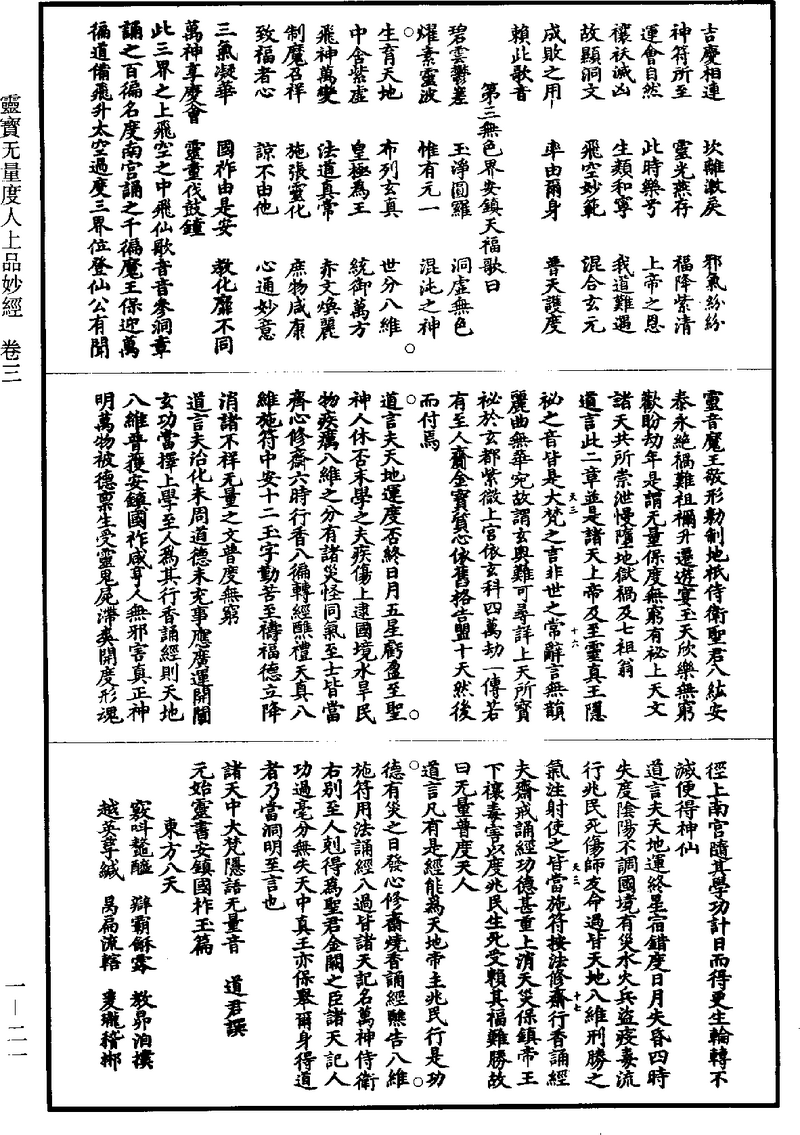 吉慶相連　坎離激戾　邪氣紛紛
神符所至　靈光燕存　福降紫清
運會自然　此時樂兮　上帝之恩
禳祆滅凶　生類和寧　我道難遇
故顯洞文　飛空妙範　混合玄元
成敗之用　率由爾身　普天護度
賴此歌音
第三無色界安鎮天福歌曰
碧雲鬱差　玉淨圓羅　洞虛無色
燿素靈波　惟有元一　混沌之神
生育天地　布列玄真　世分八維
中含紫虛　皇極為王　統御萬方
飛神萬變　法道真常　赤文煥麗
制魔召祥　施張靈化　庶物咸康
致福者心　諒不由他　心通妙意
三氣凝華　國祚由是安　教化靡不同
萬神享慶會　靈童伐鼓鐘
此三界之上飛空之中飛仙歌音音參洞章
誦之百徧名度南宮誦之千徧魔王保迎萬
徧道備飛升太空過度三界位登仙公有聞
靈音魔王敬形勑制地祇侍衛聖君八紘安
泰永絶禍難祖禰升遷遊宴至天欣樂無窮
歡盼劫年是謂无量保度無窮有祕上天文
諸天共所崇泄慢墮地獄禍及七祖翁
道言此二章並是諸天上帝及至靈真王隱
祕之音皆是大梵之言非世之常辭言無韻
天三　十六
麗曲無華宛故謂玄奧難可尋詳上天所寶
祕於玄都紫微上宮依玄科四萬劫一傳若
有至人齎金寶質心依舊格告盟十天然後
而付焉
道言夫天地運度否終日月五星虧盈至聖
神人休否末學之夫疾傷上逮國境水旱民
物疾癘八維之分有諸災怪同氣至士皆當
齊心修齋六時行香八徧轉經醮禮天真八
維施符中安十二玉字勤苦至禱福德立降
消諸不祥无量之文普度無窮
道言夫治化未周道德未充事應廣運開闡
玄功當擇上學至人為其行香誦經則天地
八維普獲安鎮國祚咸享人無邪害真正神
明萬物被德禀生受靈鬼屍滯爽開度形魂
徑上南宮隨其學功計日而得更生輪轉不
滅便得神仙
道言夫天地運終星宿錯度日月失昏四時
失度陰陽不調國境有災水火兵盜疫毒流
行兆民死傷師友命過皆天地八維刑勝之
天三　十七
氣注射使之皆當施符按法修齋行香誦經
夫齋戒誦經功德甚重上消天災保鎮帝王
下禳毒害以度兆民生死受賴其福難勝故
曰无量普度天人
道言凡有是經能為天地帝主兆民行是功
德有災之日發心修齋燒香誦經醮告八維
施符用法誦經八過皆諸天記名萬神侍衛
右別至人剋得為聖君金闕之臣諸天記人
功過毫分無失天中真王亦保舉爾身得道
者乃當洞明至言也
諸天中大梵隱語无量音　道君譔
元始靈書安鎮國祚玉篇
東方八天
竅呌䰱醯　辯霸穌露　敖昴泊撲
越英享緘　昺扁流轄
靈寶无量度人上品妙經　卷三
一—二一